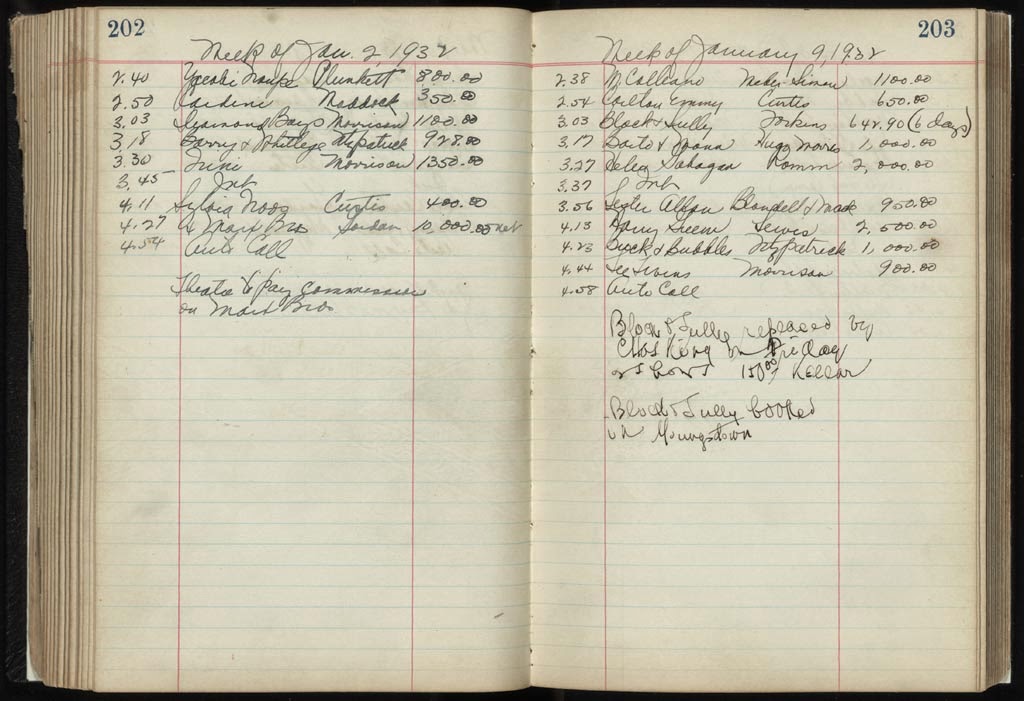 202
Week of Jan. 2, 1932
2.40 Yacopi Troupe Plunkett 800.00
2.50 Cardini Maddock 350.00
3.03 Boys Morrison 1100.00
3.18 Barry & Whitledge Fitzpatrick 928.00
3.30 Irene Morrison 1350.00
3.45 Int
4.11 Sylvia Froos Curtis 400.00
4.27 4 Marx Bros Jordan 10,000.00 net
4.54 Auto Call
Theatre to pay commission
on Marx Bros
203
Week of January 9, 1932
2.38 Simon 1100.00
2.54 Carlton Emmy Curtis 650.00
3.03 Block & Sully Jorkins 642.90 (6 days)
3.17 Barto & Mann Hugo Morris 1,000.00
3.27 Romm 2,000.00
3.37 Int
3.56 Lester Allen Blondell & Mack 950.00
4.13 Lewis 2,500.00
4.23 Buck & Bubbles Fitzpatrick 1,000.00
4.44 Morrison 900.00
4.58 Auto Call
Block & Sully replaced by
Chas King on Friday
shows 150.00 Kellar
Block & Sully booked
in Youngstown